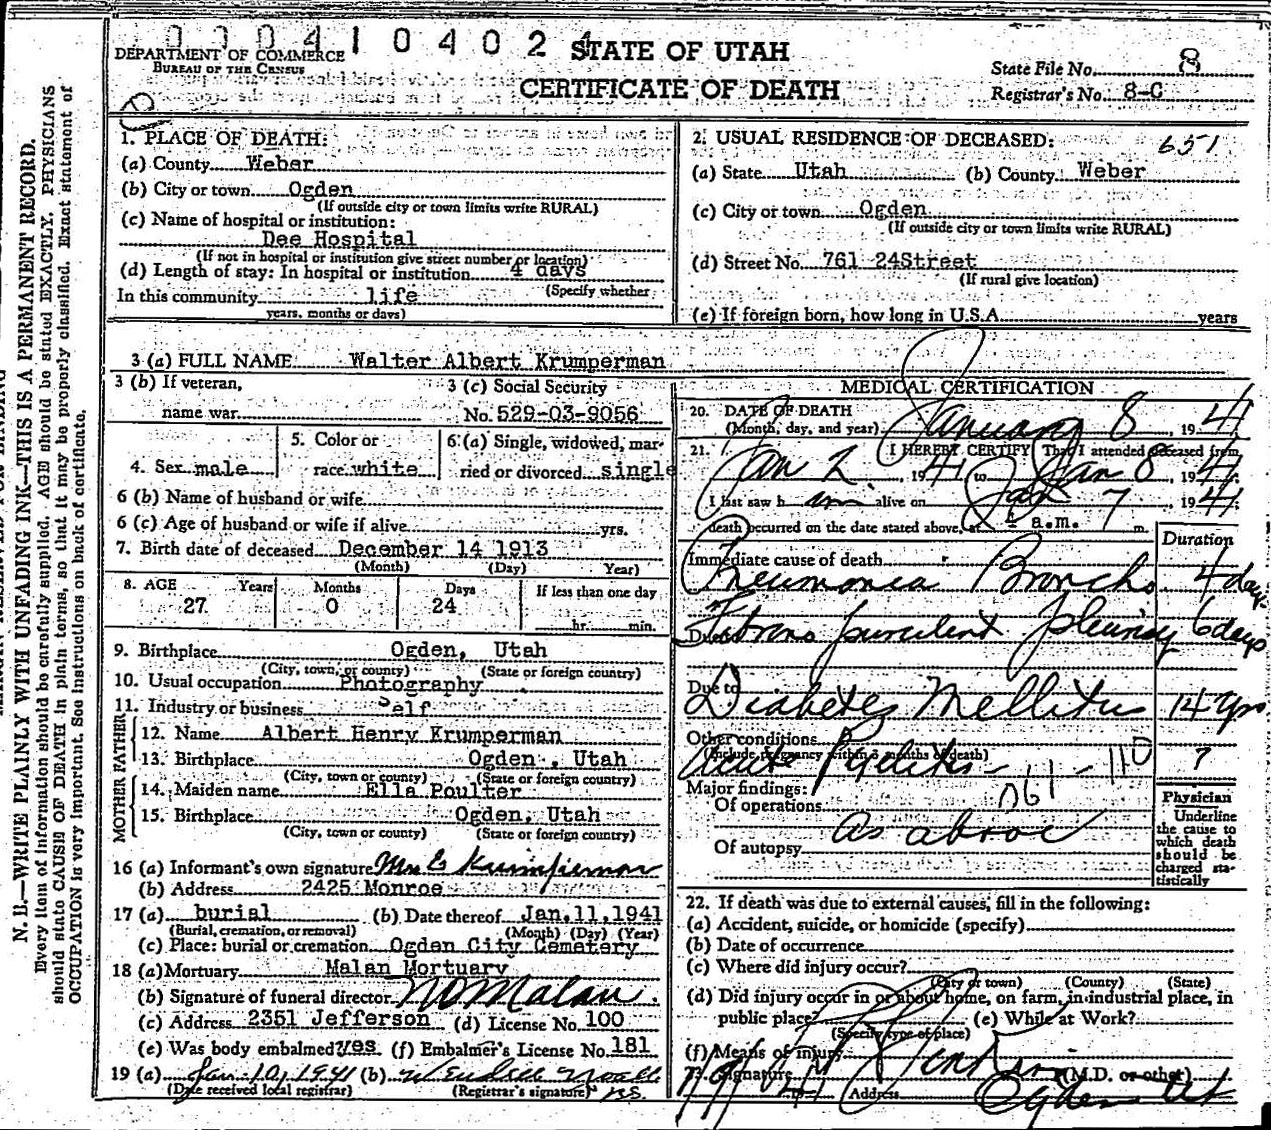 000410402
DEPARTMENT OF COMMERCE
BUREAU OF THE CENSUS
STATE OF UTAH
CERTIFICATE OF DEATH
State File No. 8
Registrar's No. 8-C
N. B.—WRITE PLAINLY WITH UNFADING INK—THIS IS A PERMANENT RECORD.
Every item of information should be carefully supplied. AGE should be stated EXACTLY. PHYSICIANS
should state CAUSE OF DEATH in plain terms, so that it may be properly classified. Exact statement of
OCCUPATION is very important. See instructions on back of certificate.
1. PLACE OF DEATH:
(a) County Weber
(b) City or town Ogden
(If outside city or town limits write RURAL)
(c) Name of hospital or institution:
Dee Hospital
(If not in hospital or institution give street number or location)
(d) Length of stay: In hospital or institution 4 days
(Specify whether
In this community life
years, months or days)
2. USUAL RESIDENCE OF DECEASED: 651
(a) State Utah (b) County Weber
(c) City or town Ogden
(If outside city or town limits write RURAL)
(d) Street No. 761 24Street
(If rural give location)
(e) If foreign born, how long in U.S.A. years
3 (a) FULL NAME Walter Albert Krumperman
3 (b) If veteran, 3 (c) Social Security
name war No. 529-03-9056
4. Sex male 5. Color or race white 6 (a) Single, widowed, married or divorced single
6 (b) Name of husband or wife
6 (c) Age of husband or wife if alive yrs.
7. Birth date of deceased December 14 1913
(Month) (Day) Year)
8. AGE Years Months Days If less than one day
27 0 24 hr. min.
9. Birthplace Ogden, Utah
(City, town, or county) (State or foreign country)
10. Usual occupation Photography
11. Industry or business Self
FATHER
12. Name Albert Henry Krumperman
13. Birthplace Ogden, Utah
(City, town or county) (State or foreign country)
MOTHER
14. Maiden name Ella Poulter
15. Birthplace Ogden, Utah
(City, town or county) (State or foreign country)
16 (a) Informant's own signature Mrs E Krumperman
(b) Address 2425 Monroe
17 (a) burial (b) Date thereof Jan.11,1941
(Burial, cremation, or removal) (Month) (Day) (Year)
(c) Place: burial or cremation Ogden City Cemetery
18 (a) Mortuary Malan Mortuary
(b) Signature of funeral director Malan
(c) Address 2351 Jefferson (d) License No. 100
(e) Was body embalmed? yes (f) Embalmer's License No. 181
19 (a) Jan 10, 1941 (b)
(Date received local registrar) (Registrar's signature)
MEDICAL CERTIFICATION
20. DATE OF DEATH
(Month, day, and year) January 8, 1941
21. I HEREBY CERTIFY That I attended deceased from
Jan 2, 1941 to Jan 8, 1941
I last saw him alive on Jan 7 1941
death occurred on the date stated above, at 4 a.m. m.
Duration
Immediate cause of death
Pneumonia Broncho 4 days
Due to Fibrino purulent pleurisy 6 days
Due to Diabetes Mellitus 14 yrs
Other conditions
(Include pregnancy within 3 months of death)
Acute 11-110 ?
Major findings: 061
Of operations
As above
Of autopsy
Physician
Underline
the cause to
which death
should be
charged sta-
tistically
22. If death was due to external causes, fill in the following:
(a) Accident, suicide, or homicide (specify)
(b) Date of occurrence
(c) Where did injury occur?
(City or town) (County) (State)
(d) Did injury occur in or about home, on farm, in industrial place, in
public place? (e) While at Work?
(Specify type of place)
(f) Means of injury
23. Signature (M.D. or other)
Address Ogden Ut